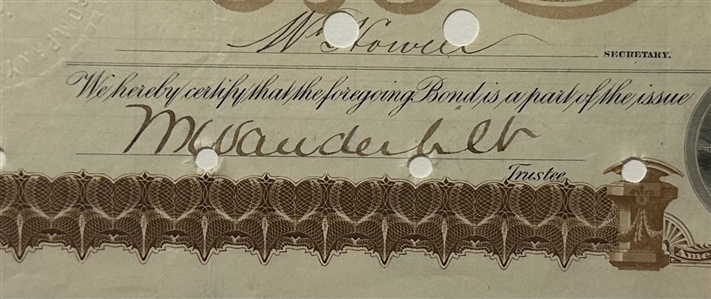 Wm Howell
SECRETARY.
We hereby certify that the foregoing Bond is a part of the issue
Vanderbilt
Trustee
Ame